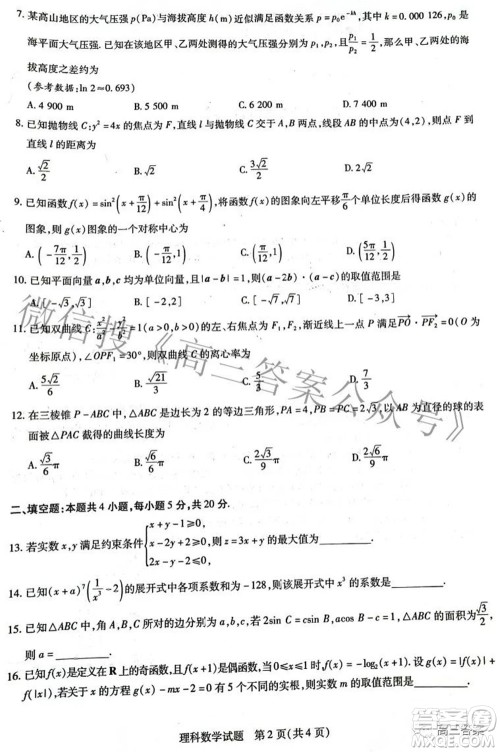 7. 某高山地区的大气压强 p(Pa)与海拔高度 h(m)近似满足函数关系 p = p₀e^{-kh}, 其中 k=0.000 126, p₀ 是
海平面大气压强. 已知在该地区甲、乙两处测得的大气压强分别为 p₁, p₂, 且 p₁/p₂ = 1/2, 那么甲、乙两处的海
拔高度之差约为
(参考数据: ln 2≈0.693)
A. 4 900 m B. 5 500 m C. 6 200 m D. 7 400 m
8. 已知抛物线 C: y²=4x 的焦点为 F, 直线 l 与抛物线 C 交于 A, B 两点, 线段 AB 的中点为(4,2), 则点 F 到直线 l
的距离为
A. √2/2 B. √2 C. 3√2/2 D. √3
9. 已知函数 f(x) = sin²(x+π/12) + sin²(x+π/4), 将函数 f(x) 的图象向左平移 π/6 个单位长度后得到函数 g(x) 的
图象, 则 g(x) 图象的一个对称中心为
A. (-7π/12, 1/2) B. (-π/12, 1) C. (π/12, 1) D. (5π/12, 1/2)
10. 已知平面向量 a, b, c 均为单位向量, 且 |a-b|=1, 则 (a-2b)·(a-c) 的取值范围是
A. [-√3, √3] B. [-2, 2] C. [-1, 3] D. [-3, 1]
11. 已知双曲线 C: x²/a² - y²/b² = 1(a>0, b>0) 的左、右焦点为 F₁, F₂, 渐近线上一点 P 满足 PO·PF₂=0 (O 为
坐标原点), ∠OPF₁=30°, 则双曲线 C 的离心率为
A. 5√2/6 B. √21/3 C. 5√3/3 D. 7/3
12. 在三棱锥 P-ABC 中, △ABC 是边长为 2 的等边三角形, PA=4, PB=PC=2√3, 以 AB 为直径的球的表
面被△PAC 截得的曲线长度为
A. √3/6 π B. √6/6 π C. 2√3/9 π D. 2√6/9 π
二、填空题: 本题共 4 小题, 每小题 5 分, 共 20 分.
13. 若实数 x, y 满足约束条件 { x+y-1≥0, x-2y+2≥0, 则 z=3x+y 的最大值为
14. 已知 (x+a)⁷(1/x³-2) 的展开式中各项系数和为 -128, 则该展开式中 x³ 的系数是
15. 已知△ABC 中, 角 A, B, C 的对边分别为 a, b, c, 若 2 = 2ccos B, 2bsin C=acos A, △ABC 的面积为 √3/2,
则 a =
16. 已知 f(x) 是定义在 R 上的奇函数, 且 f(x+1) 是偶函数, 当 0≤x≤1 时, f(x) = -log₂(x+1). 设 g(x) = |f(x)| +
f(|x|), 若关于 x 的方程 g(x) - mx - 2 = 0 有 5 个不同的实根, 则实数 m 的取值范围是
理科数学试题 第 2 页(共 4 页)
微信搜《高三答案公众号》
高三答案